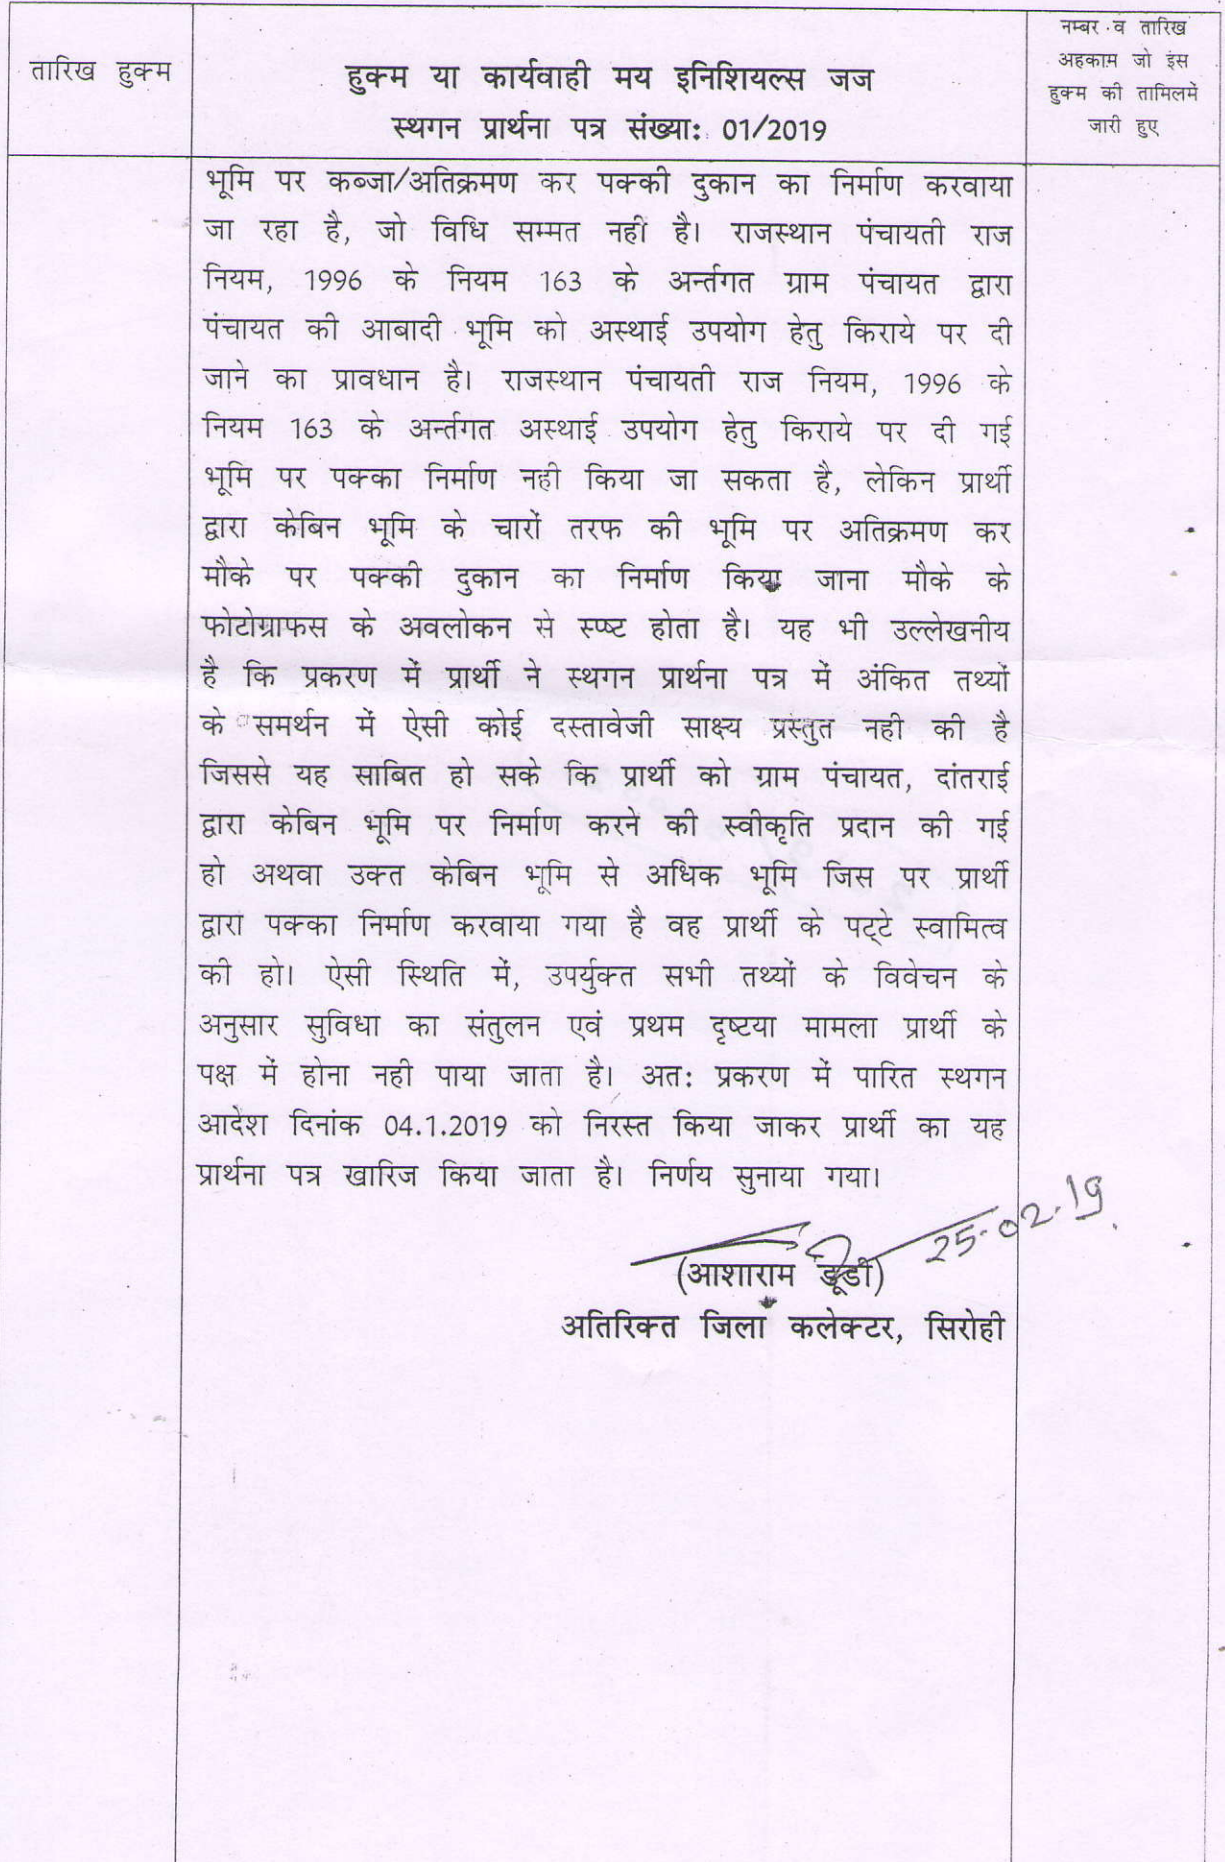 तारिख हुक्म
हुक्म या कार्यवाही मय इनिशियल्स जज
स्थगन प्रार्थना पत्र संख्या: 01/2019
नम्बर व तारिख
अहकाम जो इस
हुक्म की तामिलमें
जारी हुए
भूमि पर कब्जा/अतिक्रमण कर पक्की दुकान का निर्माण करवाया
जा रहा है, जो विधि सम्मत नहीं है। राजस्थान पंचायती राज
नियम, 1996 के नियम 163 के अर्न्तगत ग्राम पंचायत द्वारा
पंचायत की आबादी भूमि को अस्थाई उपयोग हेतु किराये पर दी
जाने का प्रावधान है। राजस्थान पंचायती राज नियम, 1996 के
नियम 163 के अर्न्तगत अस्थाई उपयोग हेतु किराये पर दी गई
भूमि पर पक्का निर्माण नही किया जा सकता है, लेकिन प्रार्थी
द्वारा केबिन भूमि के चारों तरफ की भूमि पर अतिक्रमण कर
मौके पर पक्की दुकान का निर्माण किया जाना मौके के
फोटोग्राफस के अवलोकन से स्पष्ट होता है। यह भी उल्लेखनीय
है कि प्रकरण में प्रार्थी ने स्थगन प्रार्थना पत्र में अंकित तथ्यों
के समर्थन में ऐसी कोई दस्तावेजी साक्ष्य प्रस्तुत नही की है
जिससे यह साबित हो सके कि प्रार्थी को ग्राम पंचायत, दांतराई
द्वारा केबिन भूमि पर निर्माण करने की स्वीकृति प्रदान की गई
हो अथवा उक्त केबिन भूमि से अधिक भूमि जिस पर प्रार्थी
द्वारा पक्का निर्माण करवाया गया है वह प्रार्थी के पट्टे स्वामित्व
की हो। ऐसी स्थिति में, उपर्युक्त सभी तथ्यों के विवेचन के
अनुसार सुविधा का संतुलन एवं प्रथम दृष्टया मामला प्रार्थी के
पक्ष में होना नही पाया जाता है। अत: प्रकरण में पारित स्थगन
आदेश दिनांक 04.1.2019 को निरस्त किया जाकर प्रार्थी का यह
प्रार्थना पत्र खारिज किया जाता है। निर्णय सुनाया गया।
25-02-19
(आशाराम डूडी)
अतिरिक्त जिला कलेक्टर, सिरोही